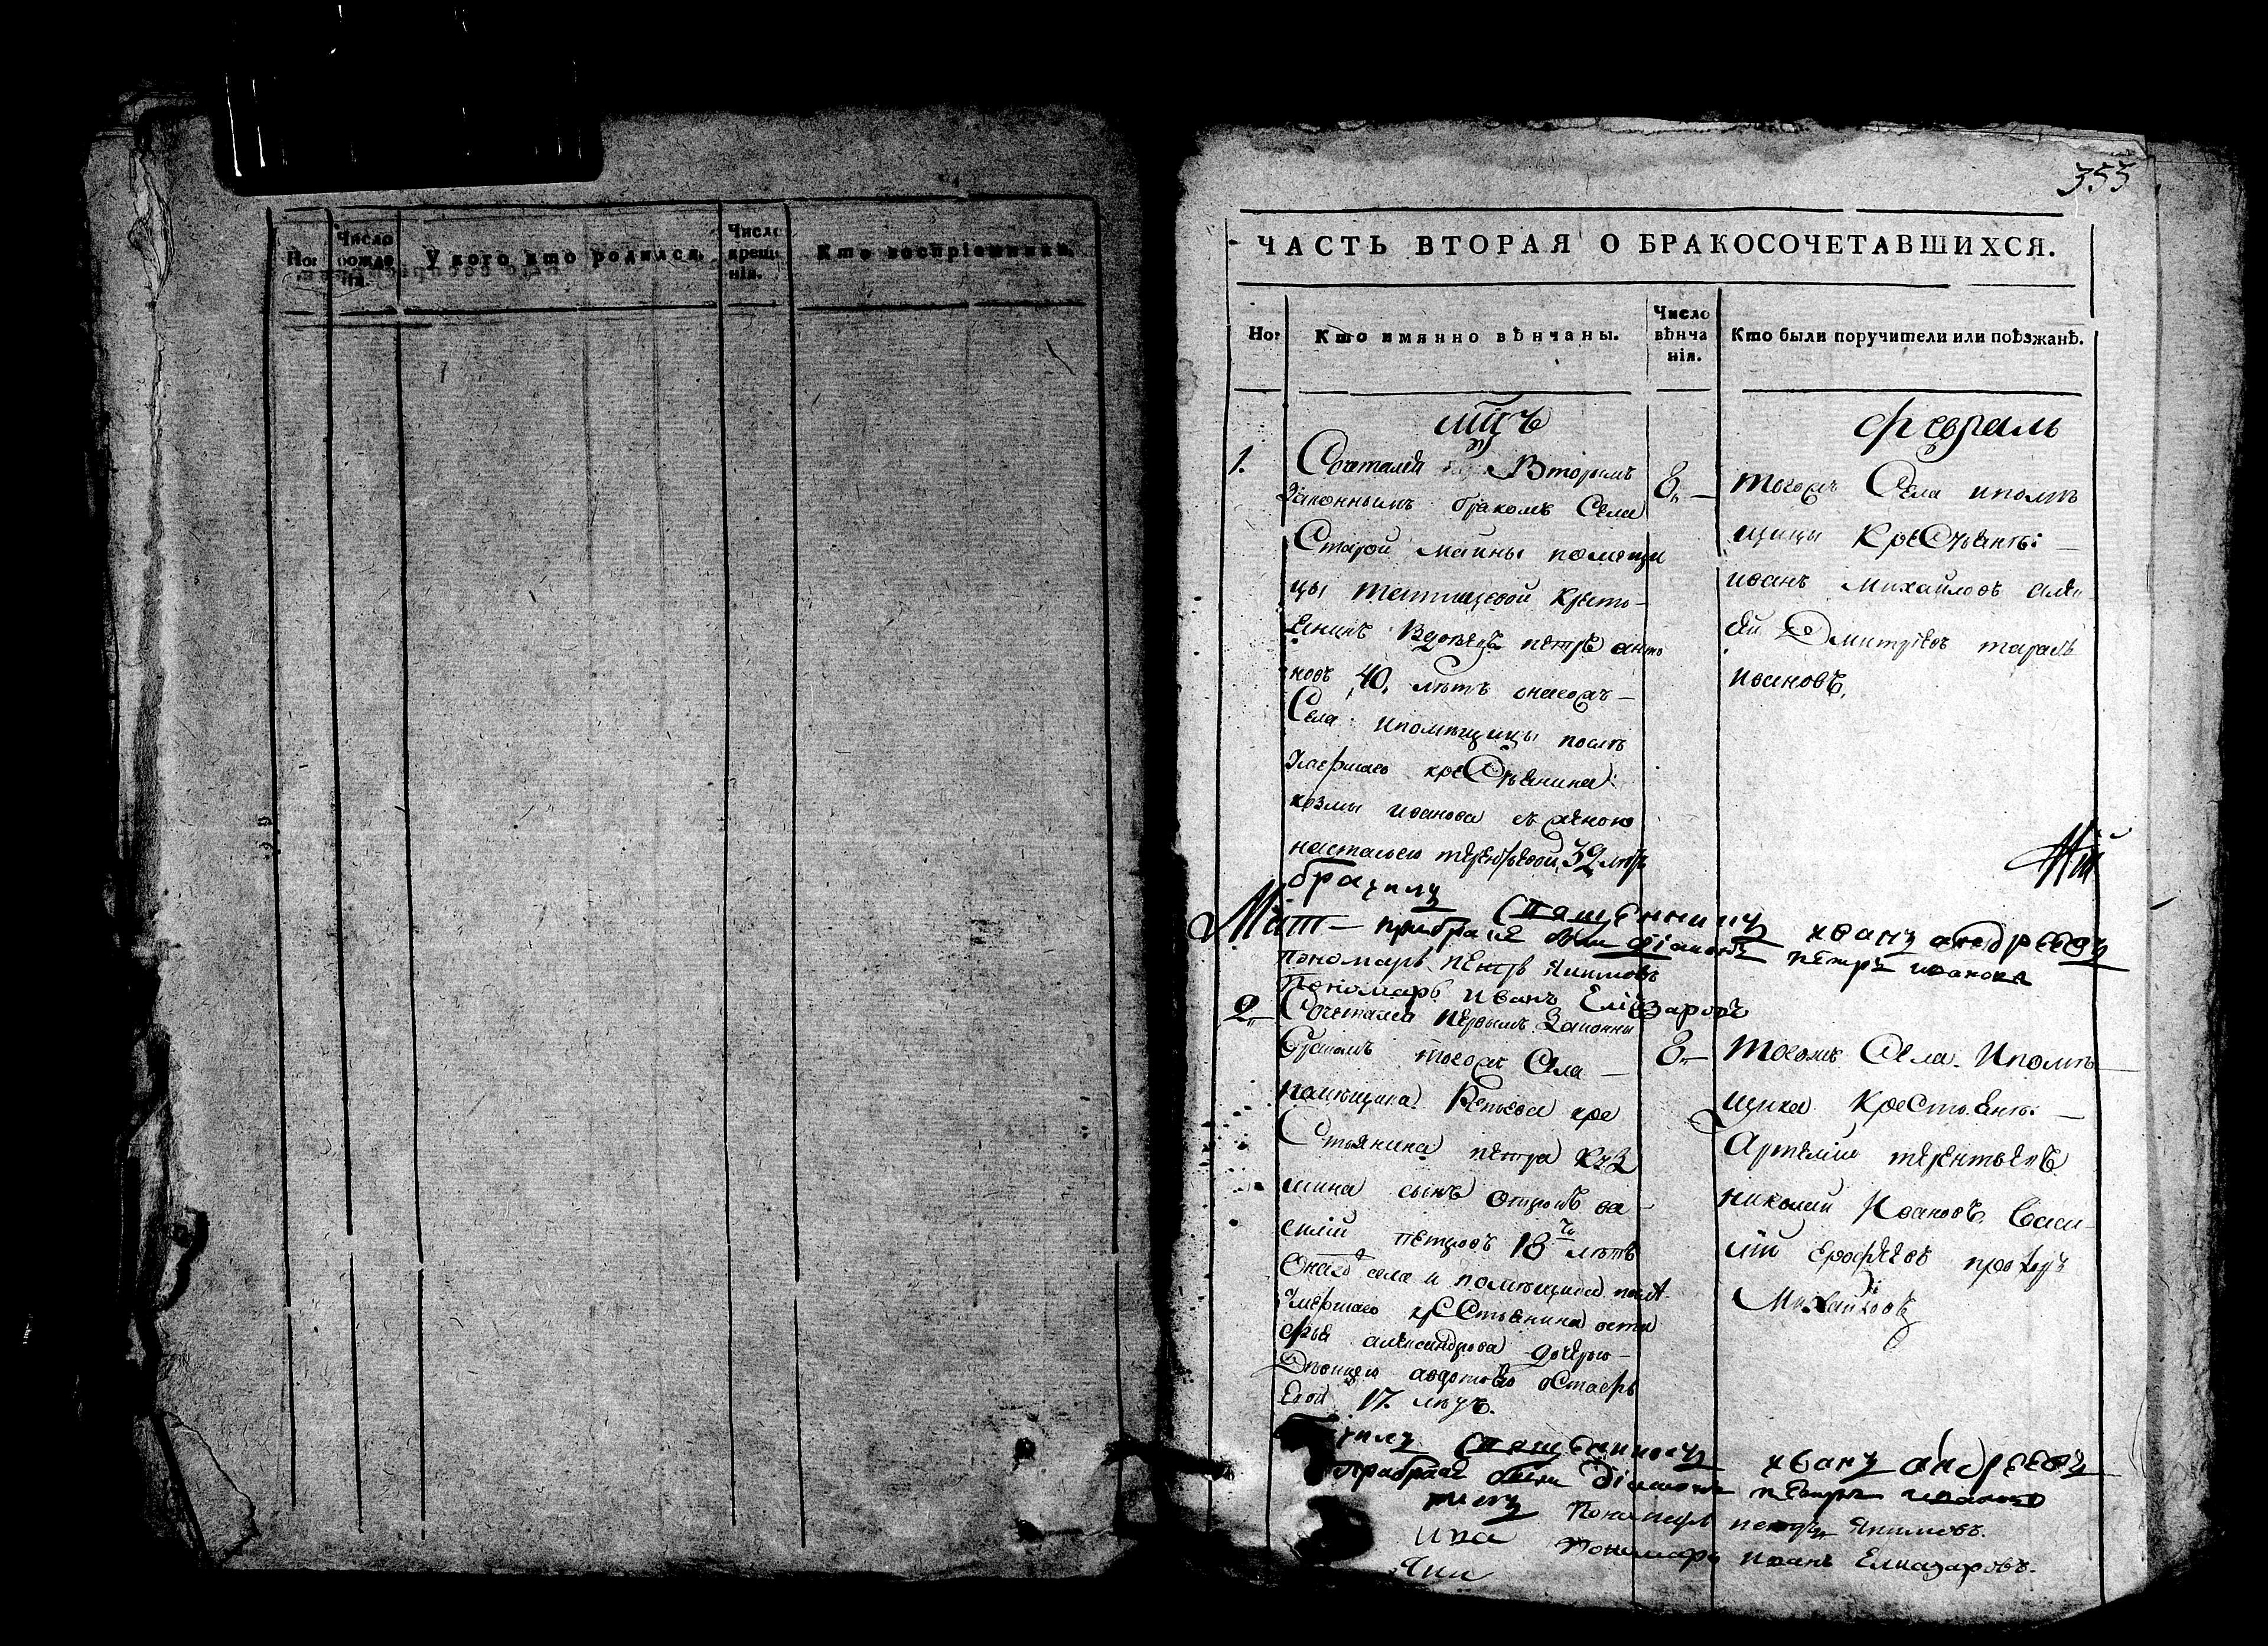 Но:
Число рожде нія.
У кого кто родился.
Число креще нія.
Кто воспріемники.
353
ЧАСТЬ ВТОРАЯ О БРАКОСОЧЕТАВШИХСЯ.
Но:
Кто имянно вѣнчаны.
Число вѣнча нія.
Кто были поручители или поѣзжанѣ.
мцъ
февраль
1.
Сочтался Вторымъ
законнымъ бракомъ Села
Старой маины помещи
цы кресто
янинъ вдовецъ петръ анто
новъ 40, лѣтъ онагожъ
Села ипомѣщицы послѣ
умершаго крестьянина
козмы иванова съ женою
настасьею терентьевой, 39 лѣтъ
8,
тогожъ Села ипомѣ
щицы Крестьянѣ:
иванъ михайловъ алек
сѣй Дмитріевъ тарасъ
ивановъ,
священникъ иванъ андреевъ
прибраке были діаконъ петръ иванова
пономарь петръ якимовъ
Пономарь иванъ Елиазаровъ
2,
Сочетался первымъ Законны
бракомъ тогожъ Села
помѣщика кре
стьянина петра Куз
мина сынъ отрокъ ва
силій петровъ 18 лѣтъ
Онаго села и помѣщика послѣ
умершаго крестьянина оста
фья александрова дочерью
Дѣвицею авдотьею остафь
евой 17. лѣтъ.
8,
тогожъ Села. Ипомѣ
щика Крестьянѣ:
Артемій терентьевъ
николай Ивановъ, Васи
лій Ерофѣевъ прохоръ
Михайловъ
священникъ иванъ андреевъ
прибраке были діаконъ петръ иванова
Пономарь петръ якимовъ.
Пономарь иванъ Елиазаровъ.